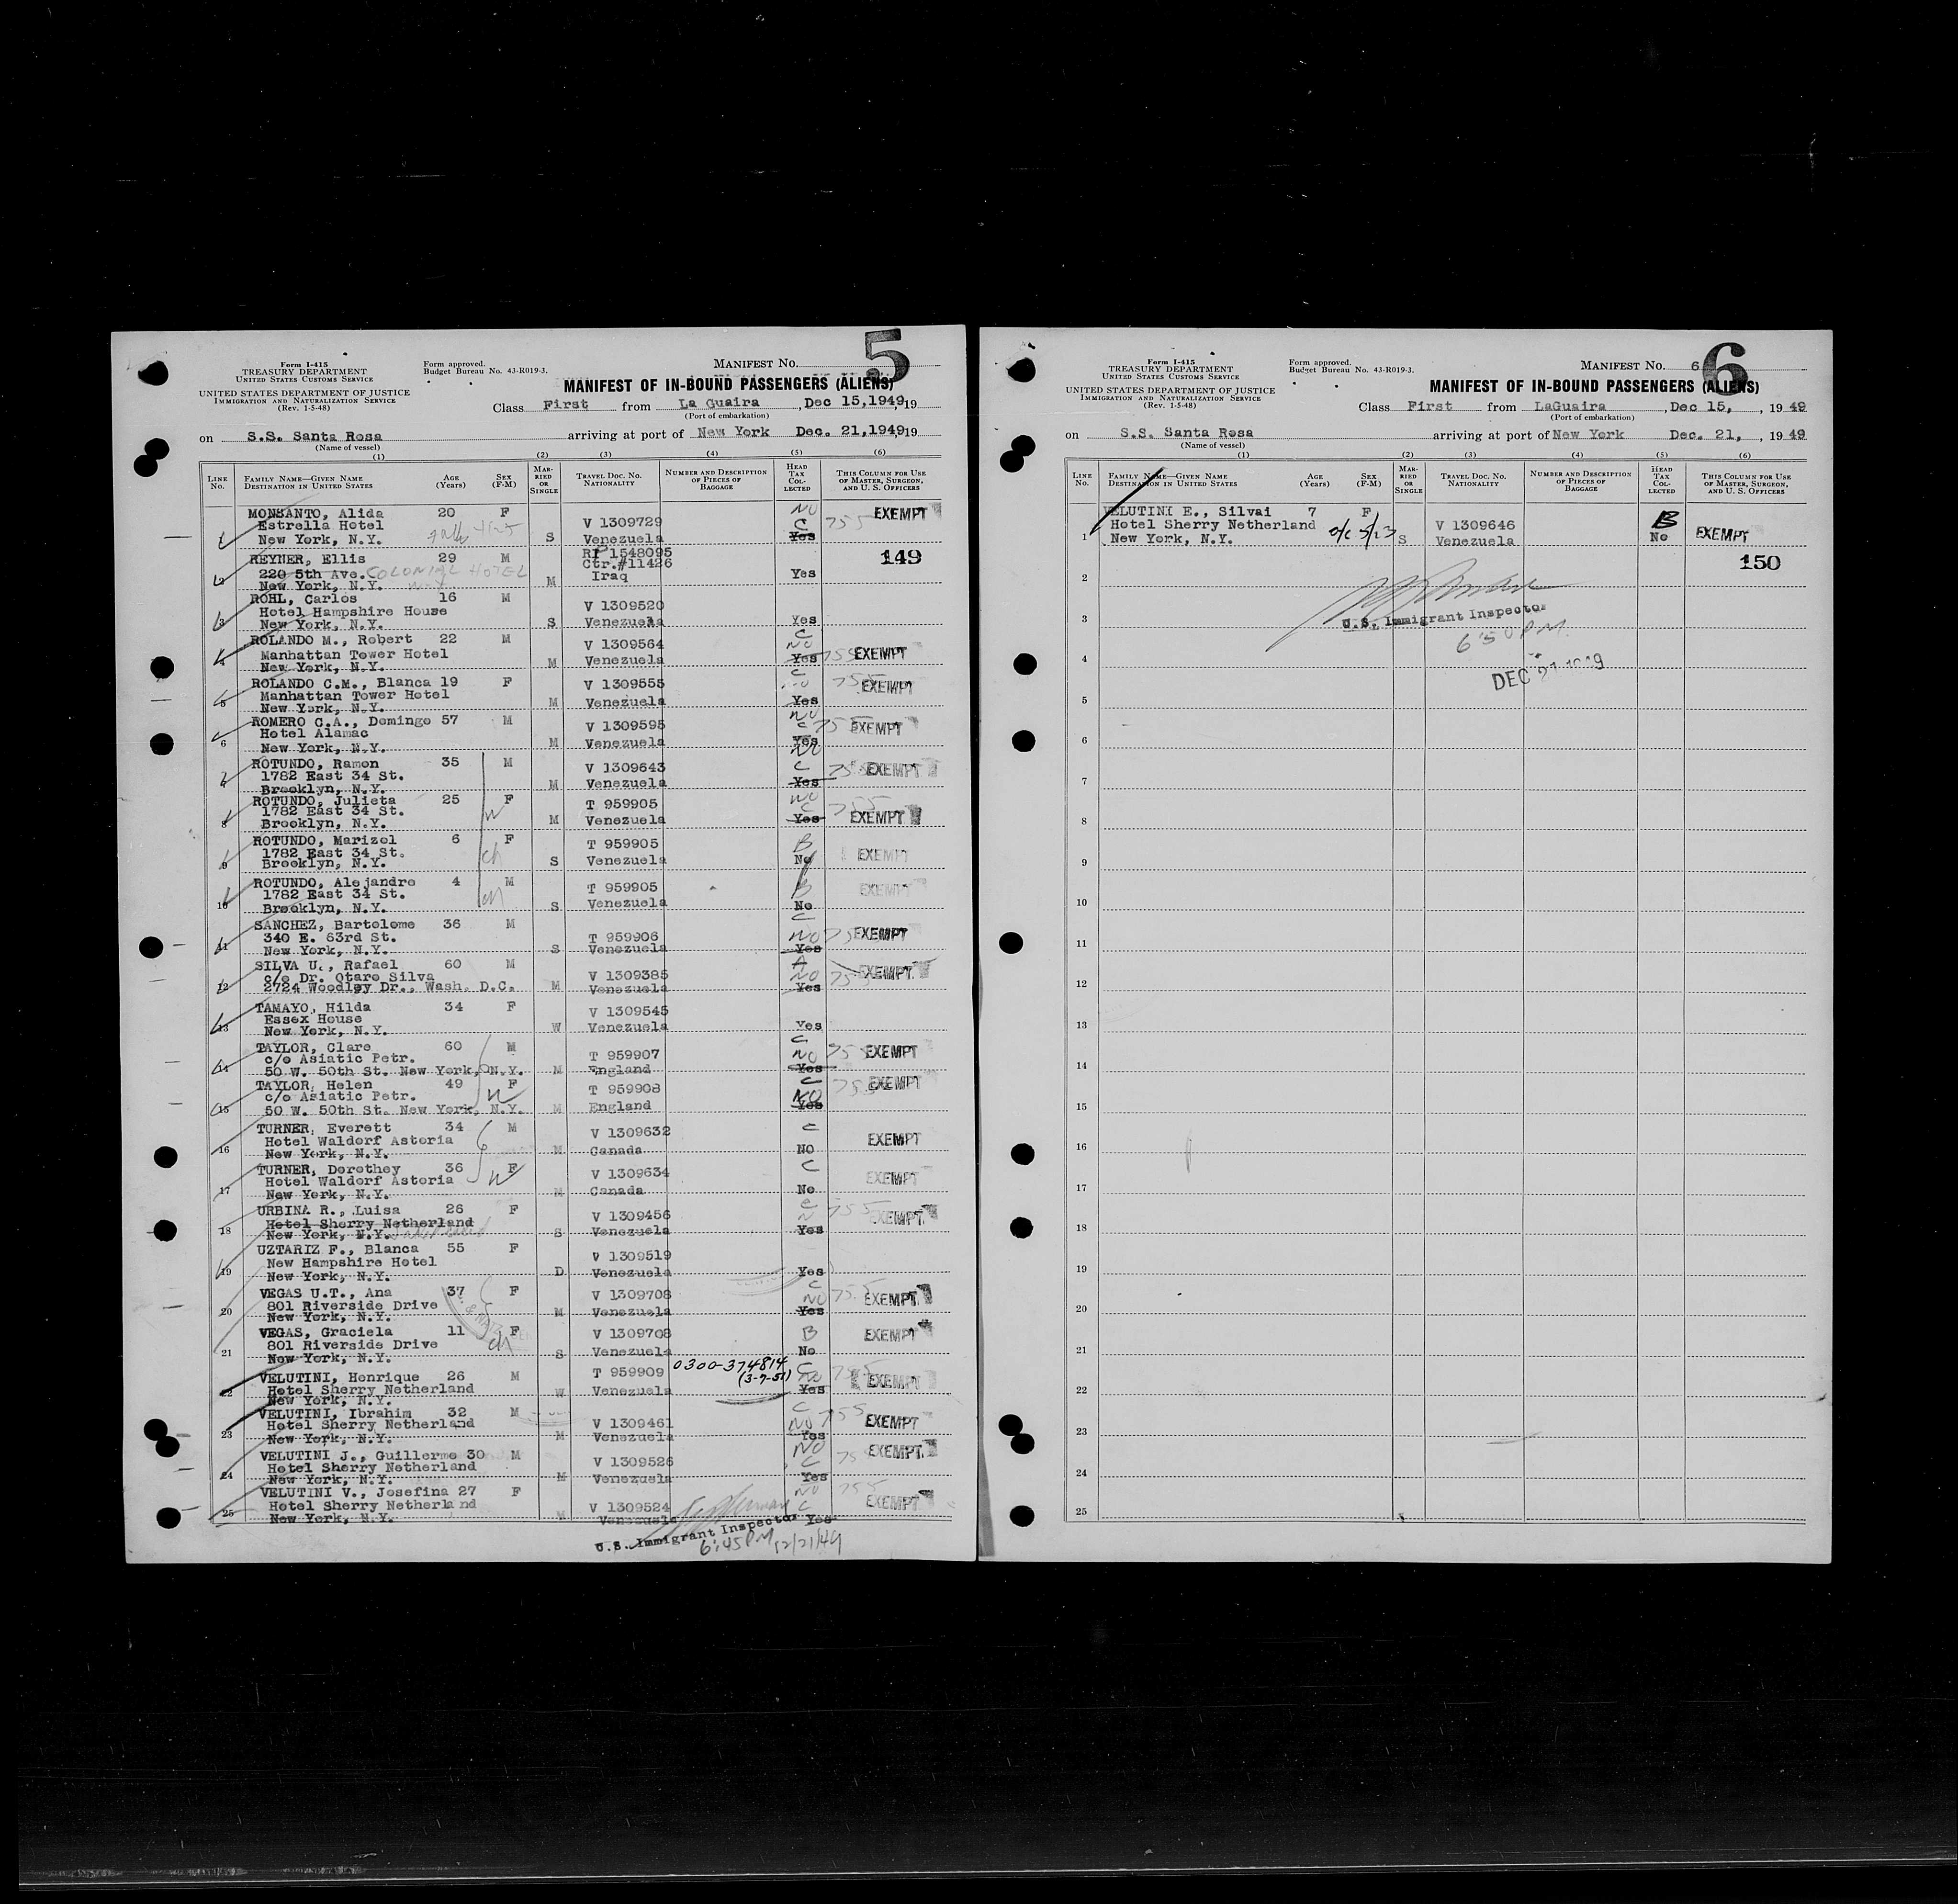 Form I-415
TREASURY DEPARTMENT
UNITED STATES CUSTOMS SERVICE
UNITED STATES DEPARTMENT OF JUSTICE
IMMIGRATION AND NATURALIZATION SERVICE
(Rev. 1-5-48)
Form approved.
Budget Bureau No. 43-R019-3.
MANIFEST No. 5
MANIFEST OF IN-BOUND PASSENGERS (ALIENS)
Class First from La Guaira , Dec 15,1949, 19
(Port of embarkation)
on S.S. Santa Rosa arriving at port of New York Dec. 21,1949, 19
(Name of vessel)
(1) (2) (3) (4) (5) (6)
LINE No. FAMILY NAME—GIVEN NAME DESTINATION IN UNITED STATES AGE (Years) SEX (F-M) MARRIED OR SINGLE TRAVEL DOC. NO. NATIONALITY NUMBER AND DESCRIPTION OF PIECES OF BAGGAGE HEAD TAX COLLECTED THIS COLUMN FOR USE OF MASTER, SURGEON, AND U. S. OFFICERS
MONSANTO, Alida 20 F NO EXEMPT
Estrella Hotel V 1309729 C 755
1 New York, N.Y. S Venezuela Yes
REYNER, Ellis 29 M RP 1548095 149
220 5th Ave. COLONIAL HOTEL Ctr.#11426
2 New York, N.Y. M Iraq Yes
ROHL, Carlos 16 M
Hotel Hampshire House V 1309520
3 New York, N.Y. S Venezuela Yes
ROLANDO M., Robert 22 M C
Manhattan Tower Hotel V 1309564 NO
4 New York, N.Y. M Venezuela Yes 755 EXEMPT
ROLANDO C.M., Blanca 19 F C 755
Manhattan Tower Hotel V 1309555 EXEMPT
5 New York, N.Y. M Venezuela Yes
ROMERO C.A., Domingo 57 M NO
Hotel Alamac V 1309595 C 755 EXEMPT
6 New York, N.Y. M Venezuela Yes
ROTUNDO, Ramon 35 M NO
1782 East 34 St. V 1309643 C 755 EXEMPT
7 Brooklyn, N.Y. M Venezuela Yes
ROTUNDO, Julieta 25 F NO
1782 East 34 St. W T 959905 C 755
8 Brooklyn, N.Y. M Venezuela Yes EXEMPT
ROTUNDO, Marizol 6 F B
1782 East 34 St. ch T 959905
9 Brooklyn, N.Y. S Venezuela No EXEMPT
ROTUNDO, Alejandro 4 M
1782 East 34 St. ch T 959905 B EXEMPT
10 Brooklyn, N.Y. S Venezuela No
SANCHEZ, Bartolome 36 M C
340 E. 63rd St. T 959906 NO 755 EXEMPT
11 New York, N.Y. S Venezuela Yes
SILVA U., Rafael 60 M A
c/o Dr. Otaro Silva V 1309385 NO 755 EXEMPT
12 2724 Woodley Dr., Wash. D.C. M Venezuela Yes
TAMAYO, Hilda 34 F
Essex House V 1309545
13 New York, N.Y. W Venezuela Yes
TAYLOR, Clare 60 M C
c/o Asiatic Petr. T 959907 NO 755 EXEMPT
14 50 W. 50th St. New York, N.Y. M England Yes
TAYLOR, Helen 49 F C 755 EXEMPT
c/o Asiatic Petr. W T 959908 NO
15 50 W. 50th St. New York, N.Y. M England Yes
TURNER, Everett 34 M C
Hotel Waldorf Astoria V 1309632 EXEMPT
16 New York, N.Y. M Canada NO
TURNER, Dorothey 36 F C
Hotel Waldorf Astoria W V 1309634 EXEMPT
17 New York, N.Y. M Canada No
URBINA R., Luisa 26 F C 755
Hotel Sherry Netherland V 1309456 N EXEMPT
18 New York, N.Y. S Venezuela Yes
UZTARIZ F., Blanca 55 F
New Hampshire Hotel V 1309519
19 New York, N.Y. D Venezuela Yes
VEGAS U.T., Ana 37 F C 755
801 Riverside Drive V 1309708 NO EXEMPT
20 New York, N.Y. M Venezuela Yes
VEGAS, Graciela 11 F
801 Riverside Drive ch V 1309708 B EXEMPT
21 New York, N.Y. S Venezuela No
VELUTINI, Henrique 26 M T 959909 0300-374814 C 755
Hotel Sherry Netherland (3-7-51) NO EXEMPT
22 New York, N.Y. W Venezuela Yes
VELUTINI, Ibrahim 32 M C
Hotel Sherry Netherland V 1309461 NO 755 EXEMPT
23 New York, N.Y. M Venezuela Yes
VELUTINI J., Guillermo 30 M NO
Hotel Sherry Netherland V 1309526 C 75 EXEMPT
24 New York, N.Y. M Venezuela Yes
VELUTINI V., Josefina 27 F NO 755
Hotel Sherry Netherland V 1309524 C EXEMPT
25 New York, N.Y. M Venezuela Yes
U.S. Immigrant Inspector
6:45 PM 12/21/49
Form I-415
TREASURY DEPARTMENT
UNITED STATES CUSTOMS SERVICE
UNITED STATES DEPARTMENT OF JUSTICE
IMMIGRATION AND NATURALIZATION SERVICE
(Rev. 1-5-48)
Form approved.
Budget Bureau No. 43-R019-3.
MANIFEST No. 6 6
MANIFEST OF IN-BOUND PASSENGERS (ALIENS)
Class First from LaGuaira , Dec 15, , 19 49
(Port of embarkation)
on S.S. Santa Rosa arriving at port of New York Dec. 21, , 19 49
(Name of vessel)
(1) (2) (3) (4) (5) (6)
LINE No. FAMILY NAME—GIVEN NAME DESTINATION IN UNITED STATES AGE (Years) SEX (F-M) MARRIED OR SINGLE TRAVEL DOC. NO. NATIONALITY NUMBER AND DESCRIPTION OF PIECES OF BAGGAGE HEAD TAX COLLECTED THIS COLUMN FOR USE OF MASTER, SURGEON, AND U. S. OFFICERS
VELUTINI E., Silvai 7 F
Hotel Sherry Netherland V 1309646 B
1 New York, N.Y. S Venezuela No EXEMPT
150
2
3 U.S. Immigrant Inspector
6:50 P.M.
4
DEC 21 1949
5
6
7
8
9
10
11
12
13
14
15
16
17
18
19
20
21
22
23
24
25